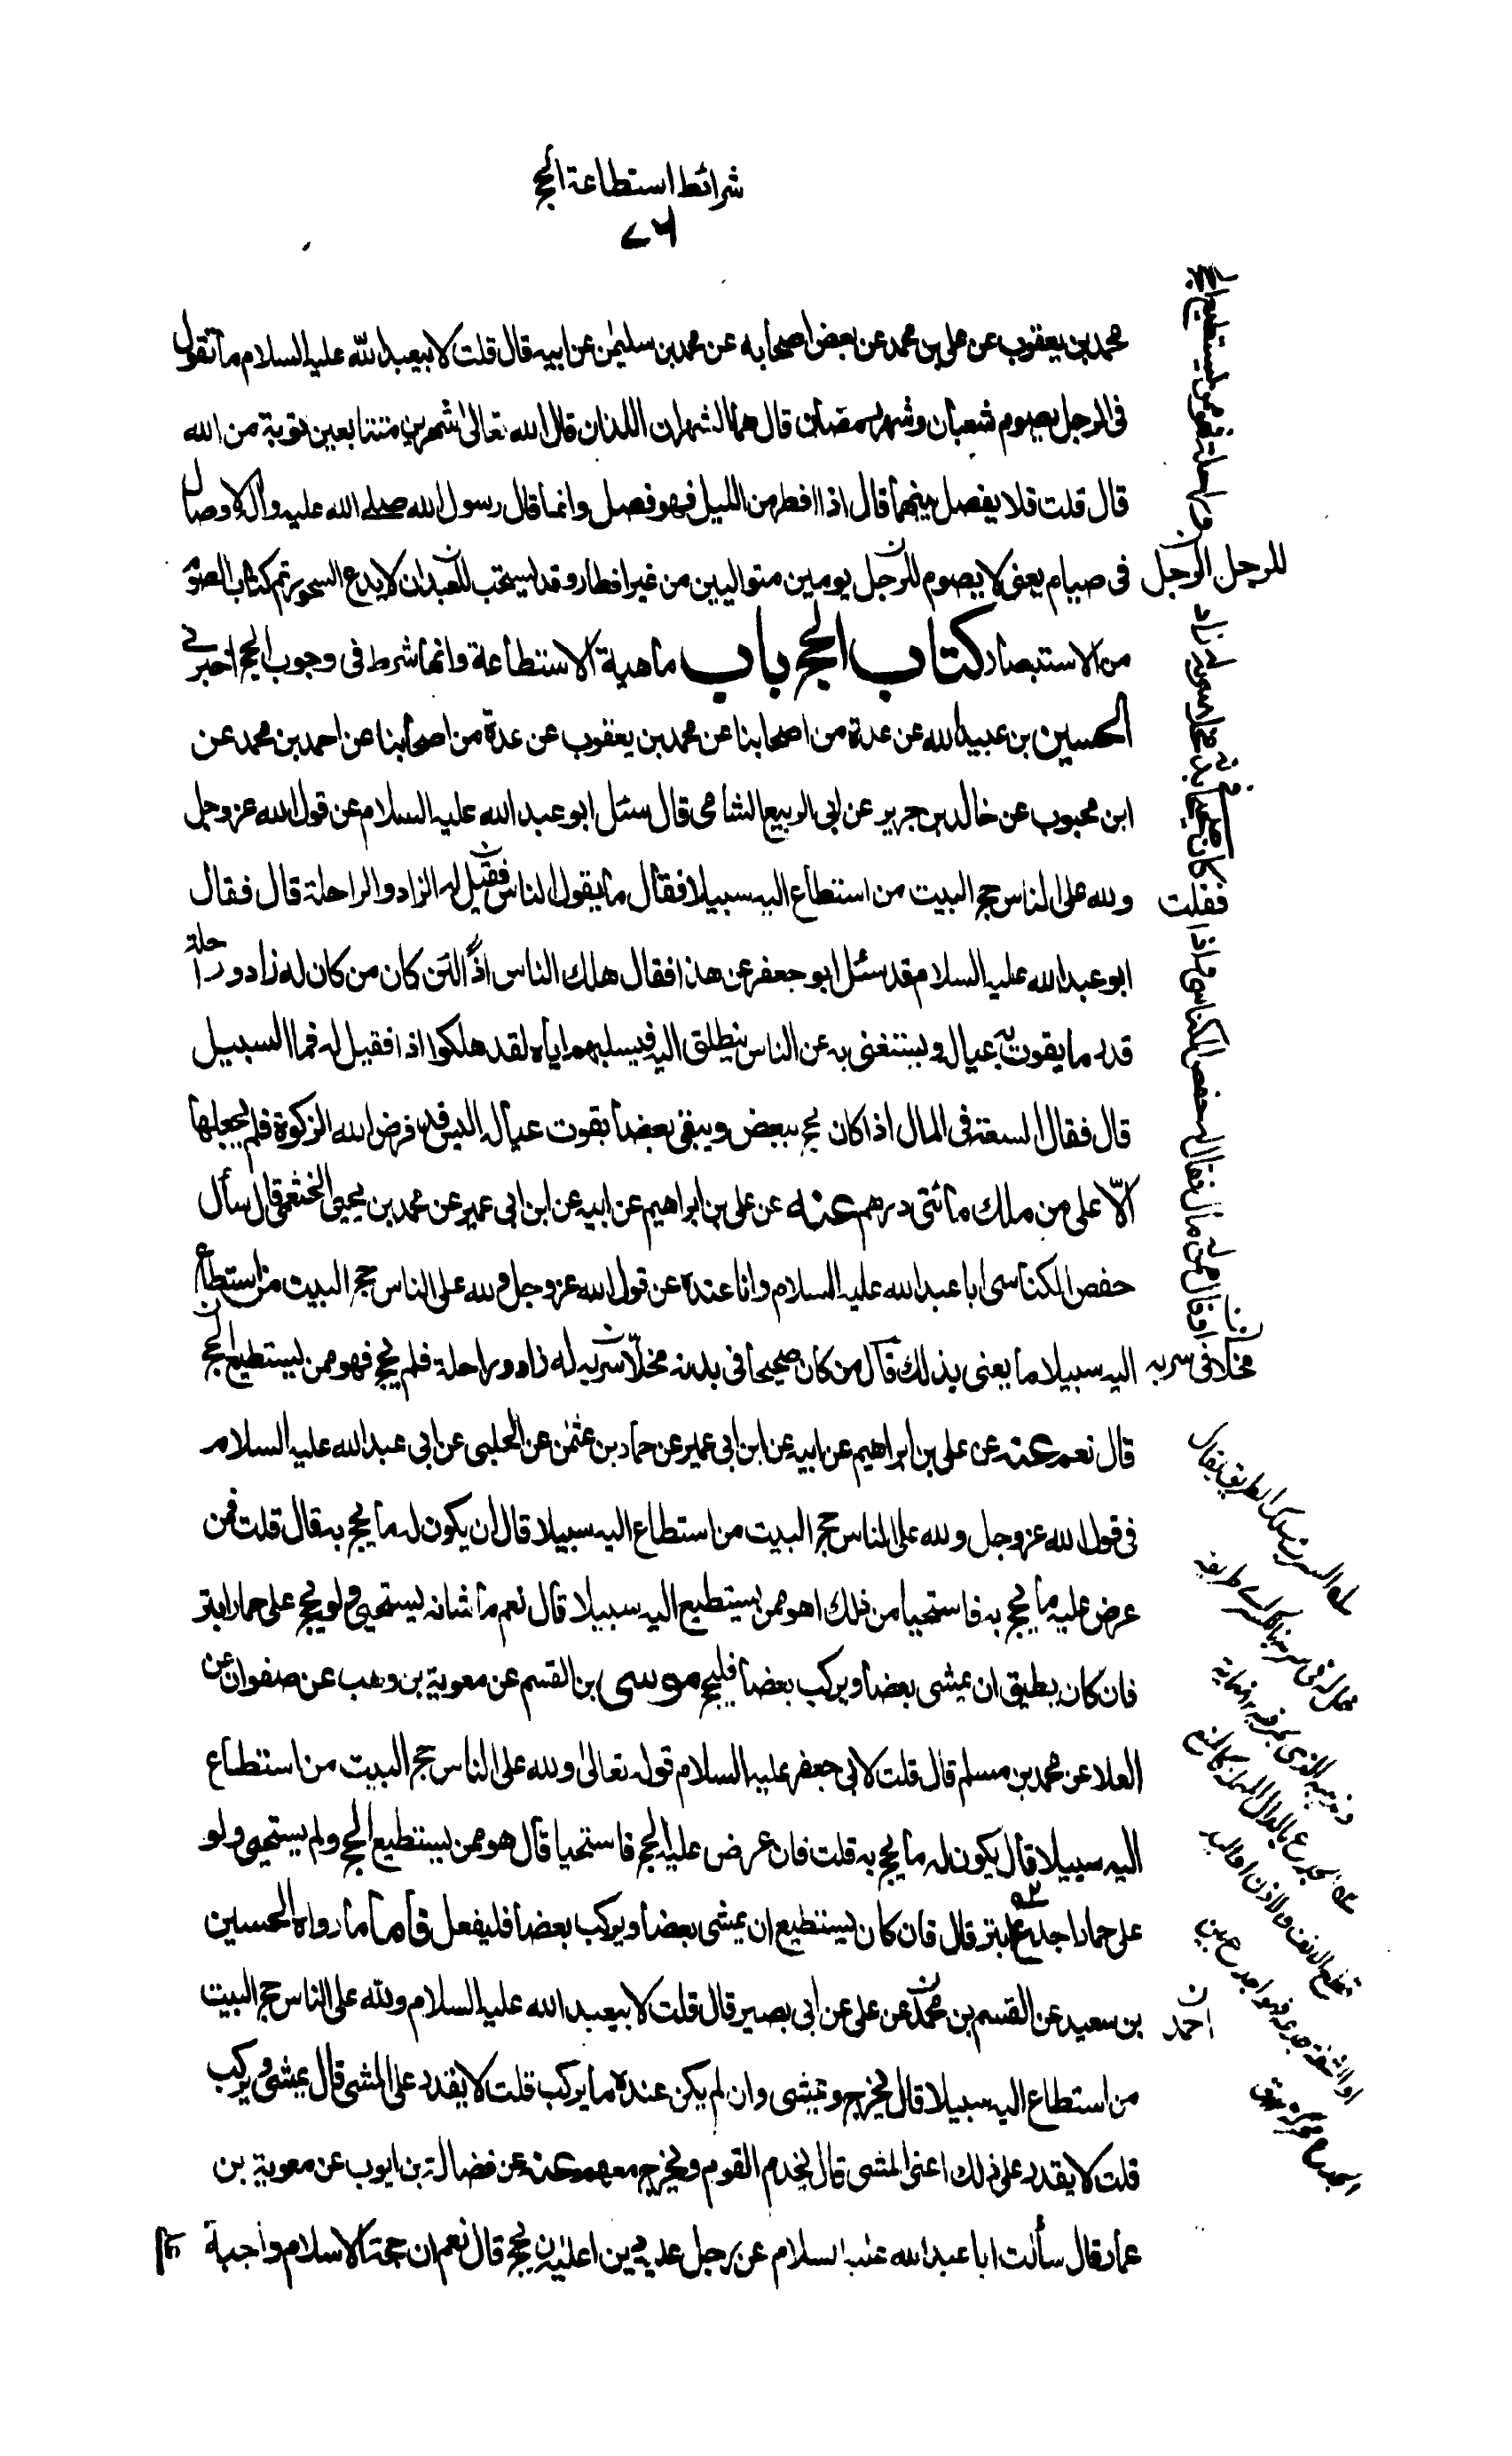 شرائط استطاعة الحج
٧٦
محمد بن يعقوب عن علي بن محمد عن بعض اصحابه عن محمد بن سليمٰن عن ابيه قال قلت لابيعبد الله عليه السلام ما تقول
في الرجل يصوم شعبان وشهر رمضان قال هما الشهران اللذان قال الله تعالى شهرين متتابعين توبة من الله
قال قلت فلا يفصل بينهما قال اذا افطر من الليل فهو فصل وانما قال رسول الله صلے الله عليه وآله لا وصال
في صيام يعني لا يصوم للرجل يومين متواليين من غير افطار وقد يستحب للعبد ان لا يدع السحور تم كتاب الصوم
للرجل الرجل
من الاستبصار كتاب الحج باب ماهية الاستطاعة وانها شرط في وجوب الحج اخبرنے
الحسين بن عبيد الله عن عدة من اصحابنا عن محمد بن يعقوب عن عدة من اصحابنا عن احمد بن محمد عن
ابن محبوب عن خالد بن جرير عن ابي الربيع الشامي قال سئل ابو عبد الله عليه السلام عن قول الله عز وجل
ولله على الناس حج البيت من استطاع اليه سبيلا فقال ما يقول الناس فقيل له الزاد والراحلة قال فقال
فقلت
ابو عبد الله عليه السلام قد سئل ابو جعفر عن هذا فقال هلك الناس اذًا لئن كان من كان له زاد وراحلة
قدر ما يقوت به عياله ويستغني به عن الناس ينطلق اليه فيسلبهم اياه لقد هلكوا اذا فقيل له فما السبيل
قال فقال السعة في المال اذا كان يحج ببعض ويبقي بعضا يقوت عياله اليس قد فرض الله الزكوة فلم يجعلها
الّا على من ملك مائتي درهم عنه عن علي بن ابراهيم عن ابيه عن ابن ابي عمير عن محمد بن يحيى الخثعمي قال سأل
حفص الكناسي ابا عبد الله عليه السلام وانا عنده عن قول الله عز وجل ولله على الناس حج البيت من استطاع
اليه سبيلا ما يعني بذلك قال من كان صحيحا في بدنه مخلّا سربه له زاد وراحلة فلم يحج فهو ممن يستطيع الحج
مخلا في سربه
قال نعم عنه عن علي بن ابراهيم عن ابيه عن ابن ابي عمير عن حماد بن عثمٰن عن الحلبي عن ابي عبد الله عليه السلام
في قول الله عز وجل ولله على الناس حج البيت من استطاع اليه سبيلا قال ان يكون له ما يحج به قال قلت فمن
عرض عليه ما يحج به فاستحيا من ذلك اهو ممن يستطيع اليه سبيلا قال نعم ما شانه يستحيي ولو يحج على حمار ابتر
فان كان يطيق ان يمشي بعضا ويركب بعضا فليحج موسى بن القسم عن معوية بن وهب عن صفوان عن
العلا عن محمد بن مسلم قال قلت لابي جعفر عليه السلام قوله تعالى ولله على الناس حج البيت من استطاع
اليه سبيلا قال يكون له ما يحج به قلت فان عرض عليه الحج فاستحيا قال هو ممن يستطيع الحج ولم يستحيي ولو
على حمار اجدع ابتر قال فان كان يستطيع ان يمشي بعضا ويركب بعضا فليفعل فاما ما رواه الحسين
بن سعيد عن القسم بن محمد عن علي عن ابي بصير قال قلت لابيعبد الله عليه السلام ولله على الناس حج البيت
احمد
من استطاع اليه سبيلا قال يخرج ويمشي وان لم يكن عنده ما يركب قلت لا يقدر على المشي قال يمشي ويركب
قلت لا يقدر على ذلك اعني المشي قال يخدم القوم ويخرج معهم عنه عن فضالة بن ايوب عن معوية بن
عمار قال سألت ابا عبد الله عليه السلام عن رجل عليه دين اعليه ان يحج قال نعم ان حجة الاسلام واجبة